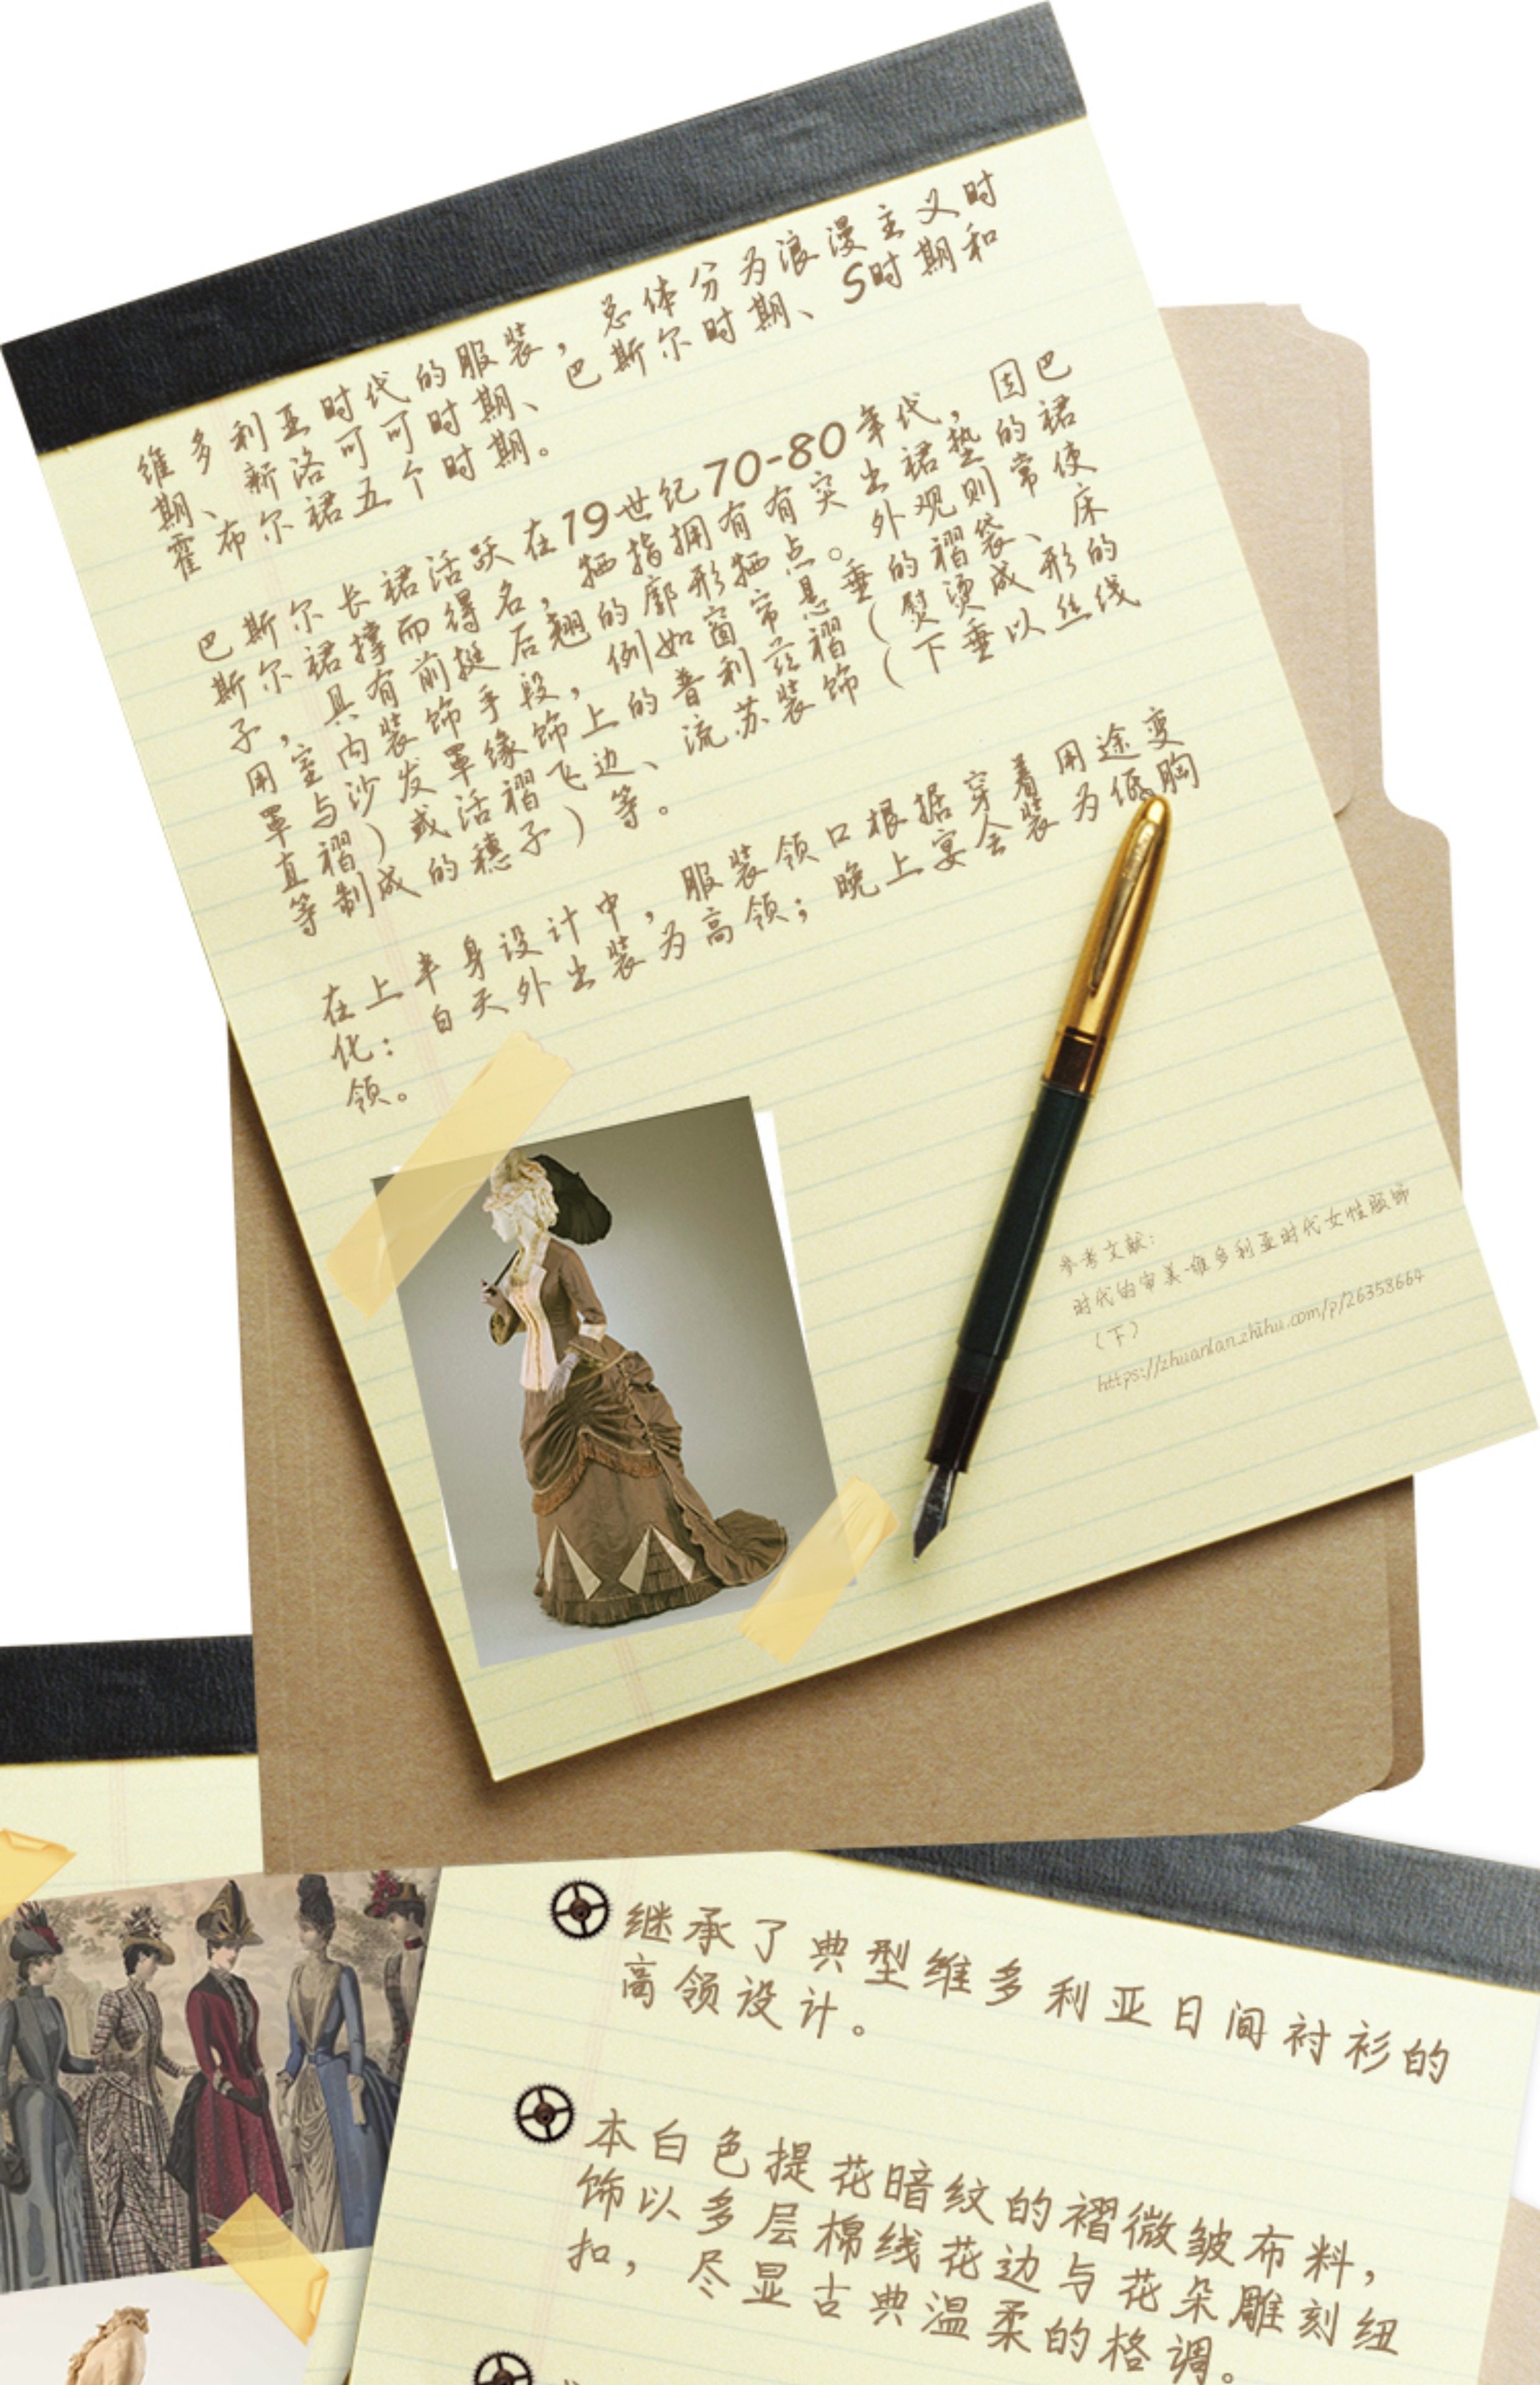 维多利亚时代的服装，总体分为浪漫主义时
期、新洛可可时期、巴斯尔时期、S时期和
霍布尔裙五个时期。
巴斯尔长裙活跃在19世纪70-80年代，因巴
斯尔裙撑而得名，牺指拥有有突出裙垫的裙
子，具有前挺后翘的廓形牺点。外观则常使
用室内装饰手段，例如窗帘悬垂的褶袋、床
罩与沙发罩缘饰上的普利兹褶（熨烫成形的
直褶）或活褶飞边、流苏装饰（下垂以丝线
等制成的穗子）等。
在上半身设计中，服装领口根据穿着用途变
化：白天外出装为高领；晚上宴会装为低胸
领。
参考文献：
时代的审美-维多利亚时代女性服饰
（下）
https://zhuanlan.zhihu.com/p/26358664
继承了典型维多利亚日间衬衫的
高领设计。
本白色提花暗纹的褶微皱布料，
饰以多层棉线花边与花朵雕刻纽
扣，尽显古典温柔的格调。